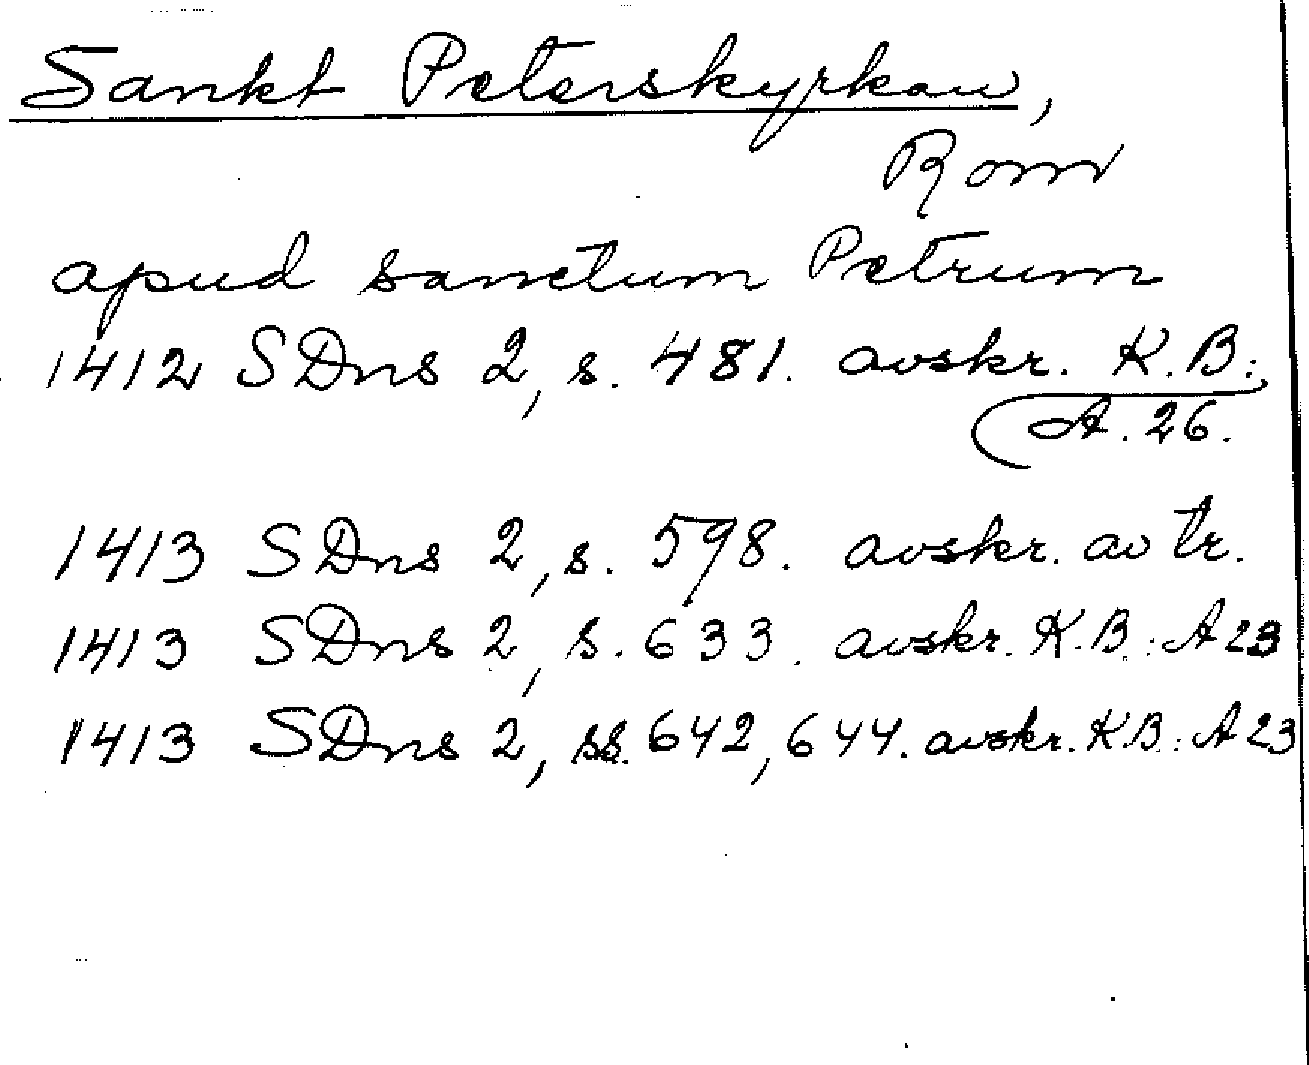 Sankt Peterskyrkan,
Rom
apud sanctum Petrum
1412 SDns 2, s. 481. avskr. K.B.:
A. 26.
1413 SDns 2, s. 598. avskr. av tr.
1413 SDns 2, s. 633. avskr. K.B.: A 23
1413 SDns 2, ss. 642, 644. avskr. K.B.: A 23